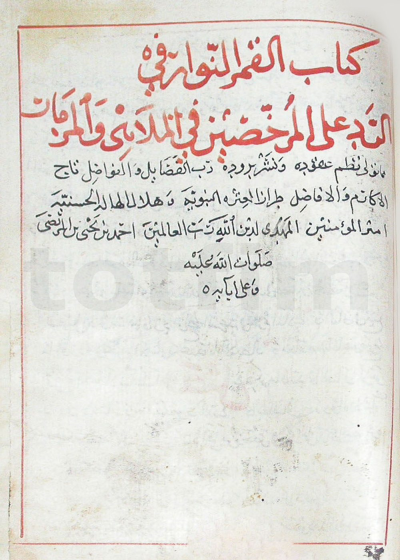 كتاب القمر النوار في
الرد على المرخصين في الملاهي والمزمار
مما تولى نظم عقوده ونشر بروده رب الفضايل والفواضل تاج
الاكارم والافاضل طراز العترة النبوية وهلال الهالة الحسنية
امير المؤمنين المهدي لدين الله رب العالمين احمد بن يحيى بن المرتضى
صلوات الله عليه
وعلى ابايه
totfim